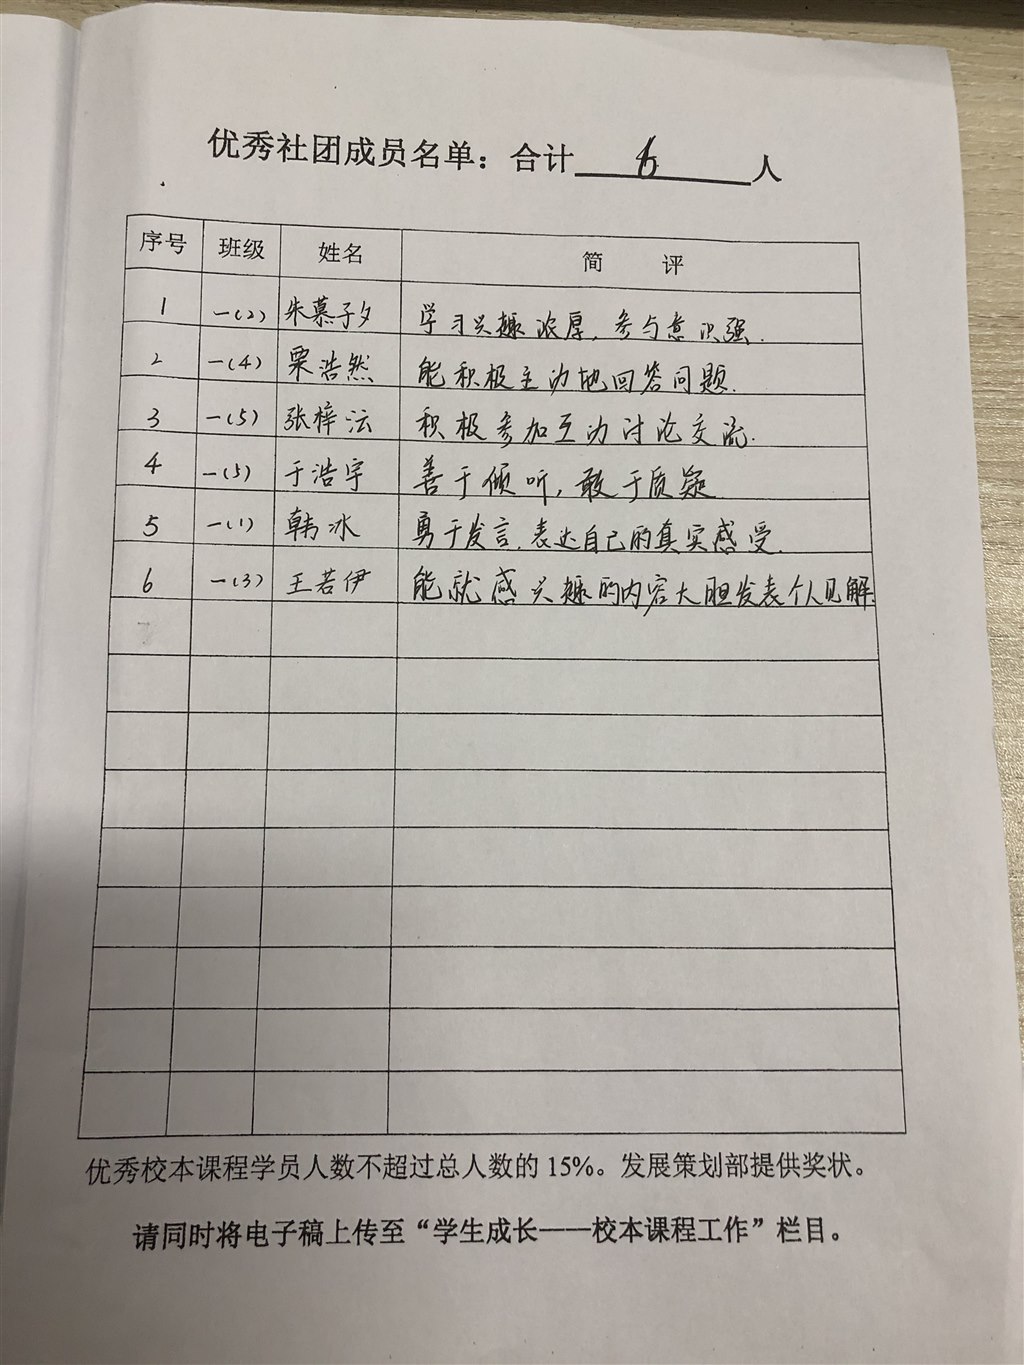 优秀社团成员名单：合计 6 人
序号 班级 姓名 简 评
1 一(2) 朱慕子夕 学习兴趣浓厚，参与意识强.
2 一(4) 栗浩然 能积极主动地回答问题.
3 一(5) 张梓沄 积极参加互动讨论交流.
4 一(5) 于浩宇 善于倾听，敢于质疑
5 一(1) 韩冰 勇于发言，表达自己的真实感受.
6 一(3) 王若伊 能就感兴趣的内容大胆发表个人见解.
优秀校本课程学员人数不超过总人数的 15%。发展策划部提供奖状。
请同时将电子稿上传至“学生成长——校本课程工作”栏目。